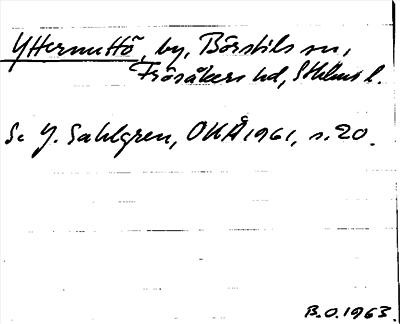 Yttermuttö, by, Börstils sn,
Frösåkers hd, Sthlms l.
Se J. Sahlgren, OUÅ 1961, s. 20.
B.O. 1963.